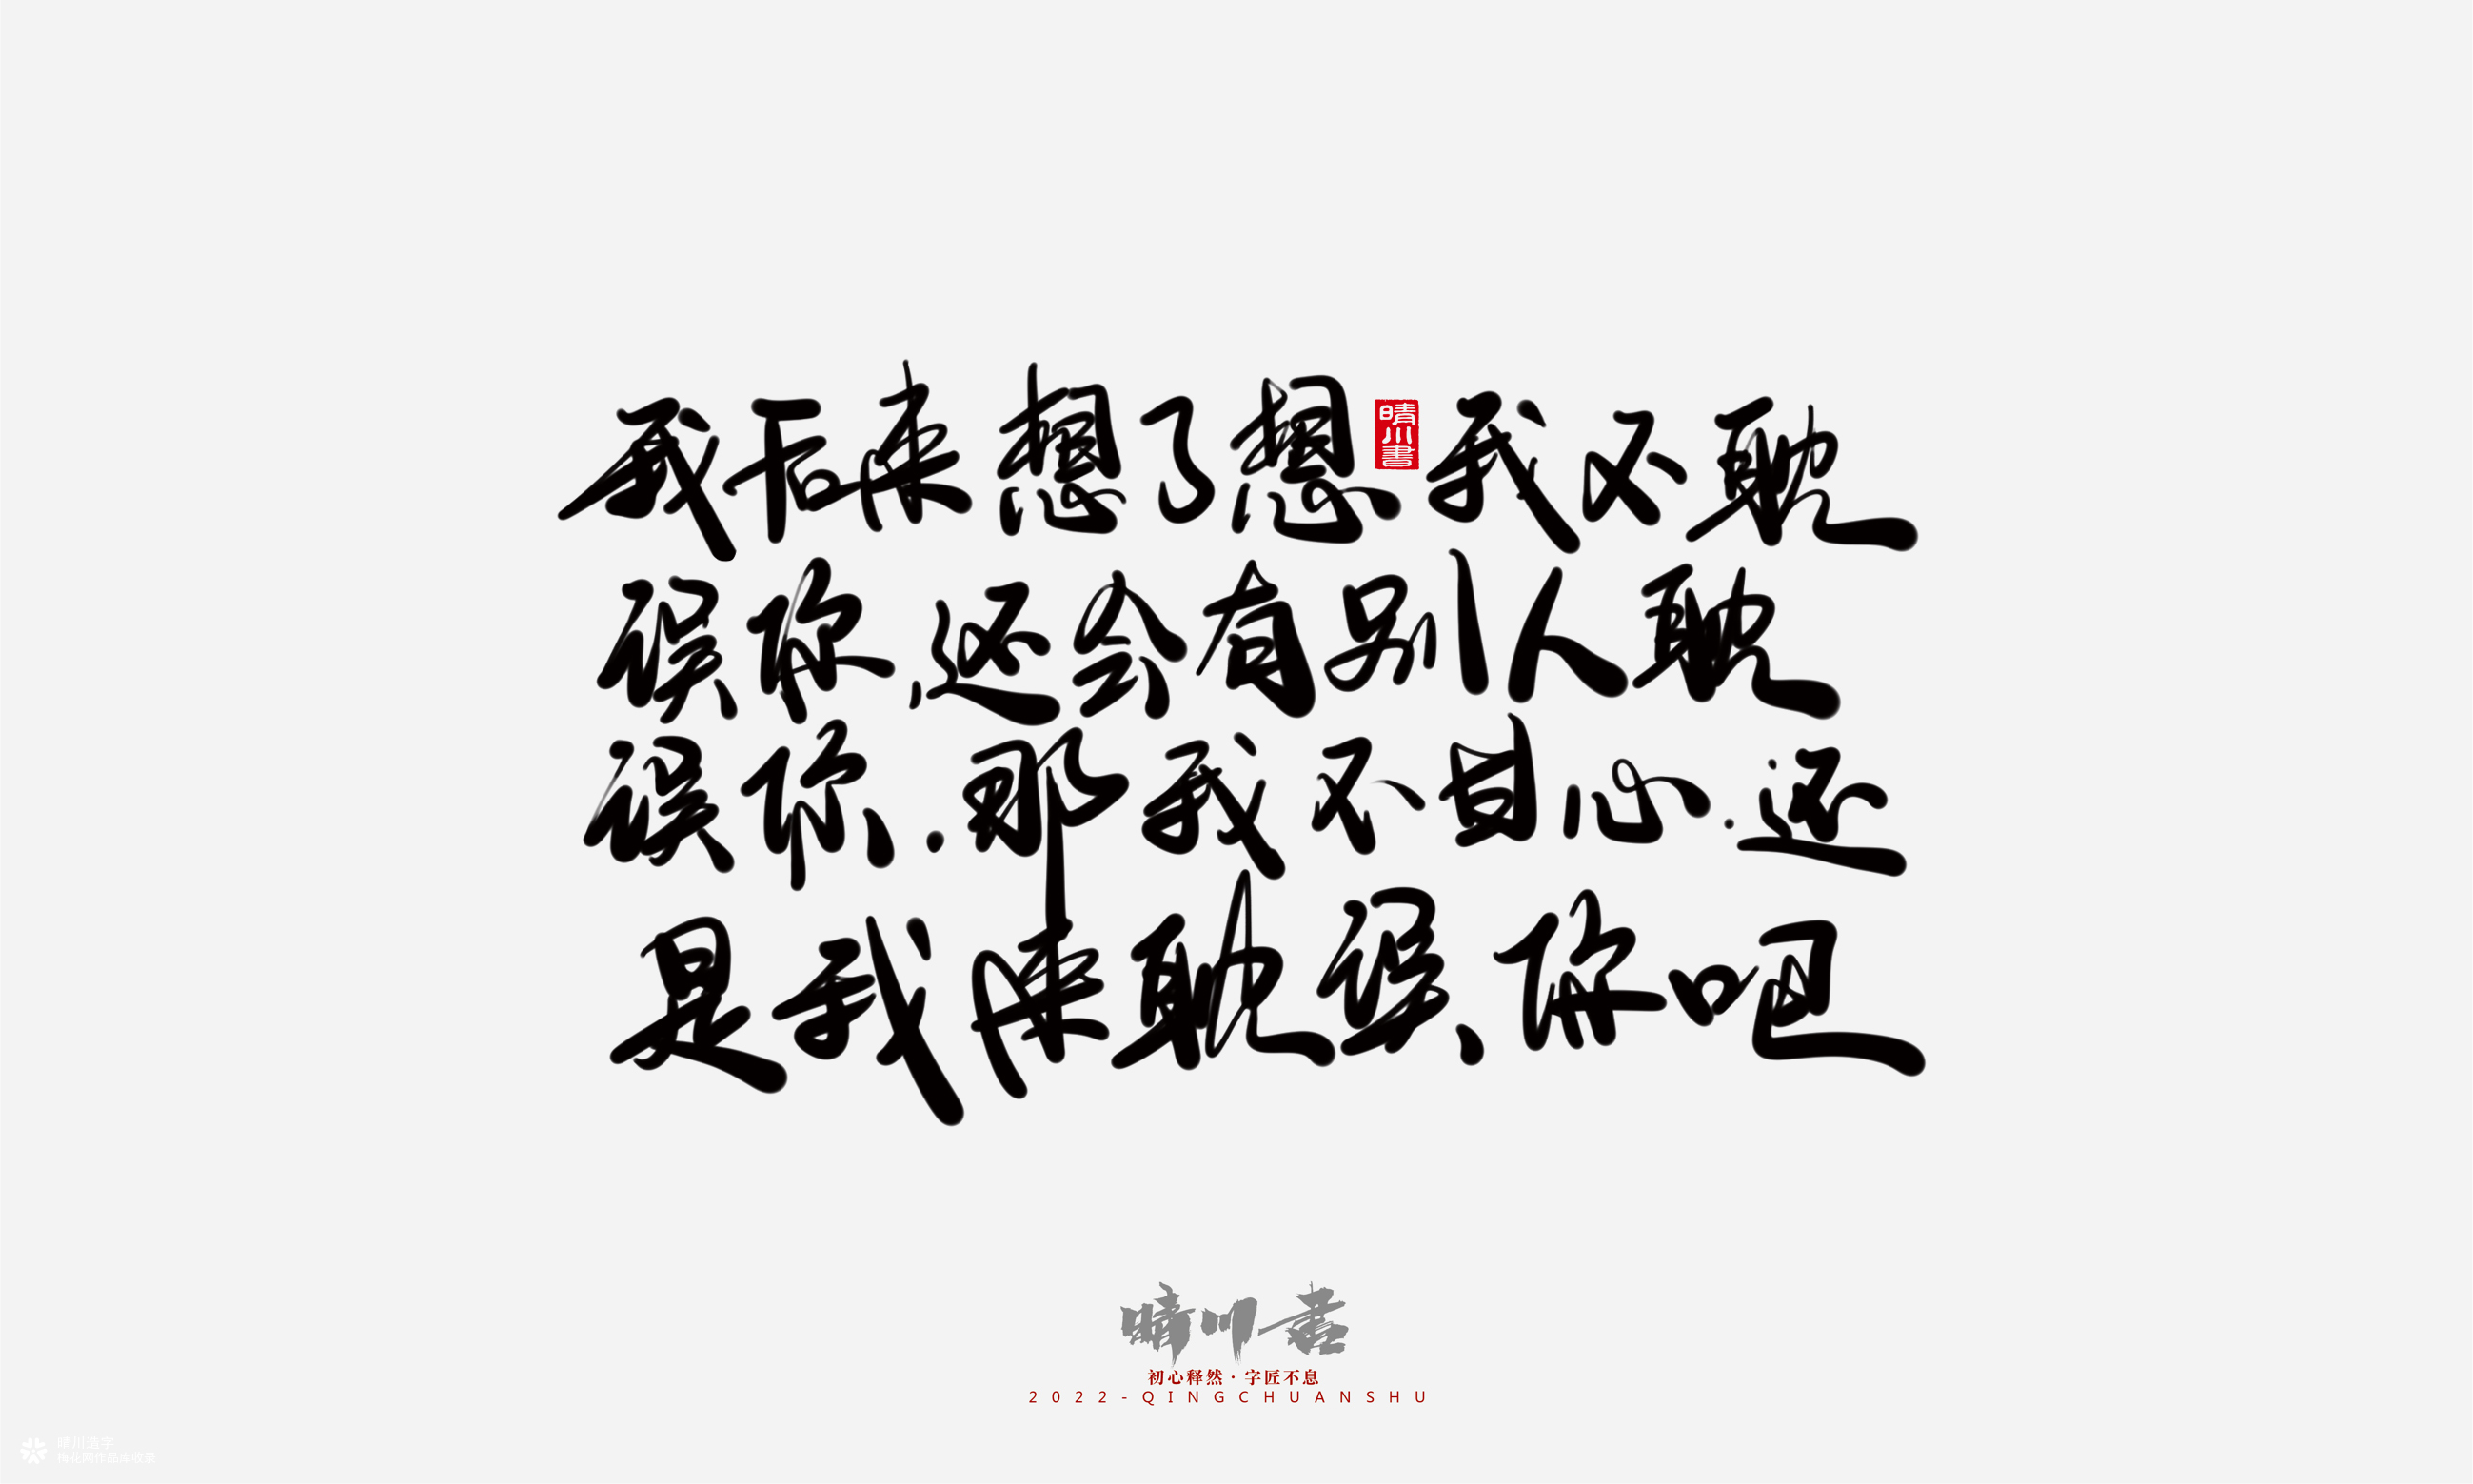 我后来想了想 我不耽
误你,还会有别人耽
误你.那我不甘心.还
是我来耽误你吧
晴川書
晴川書
初心释然·字匠不息
2022-QINGCHUANSHU
晴川造字
梅花网作品库收录